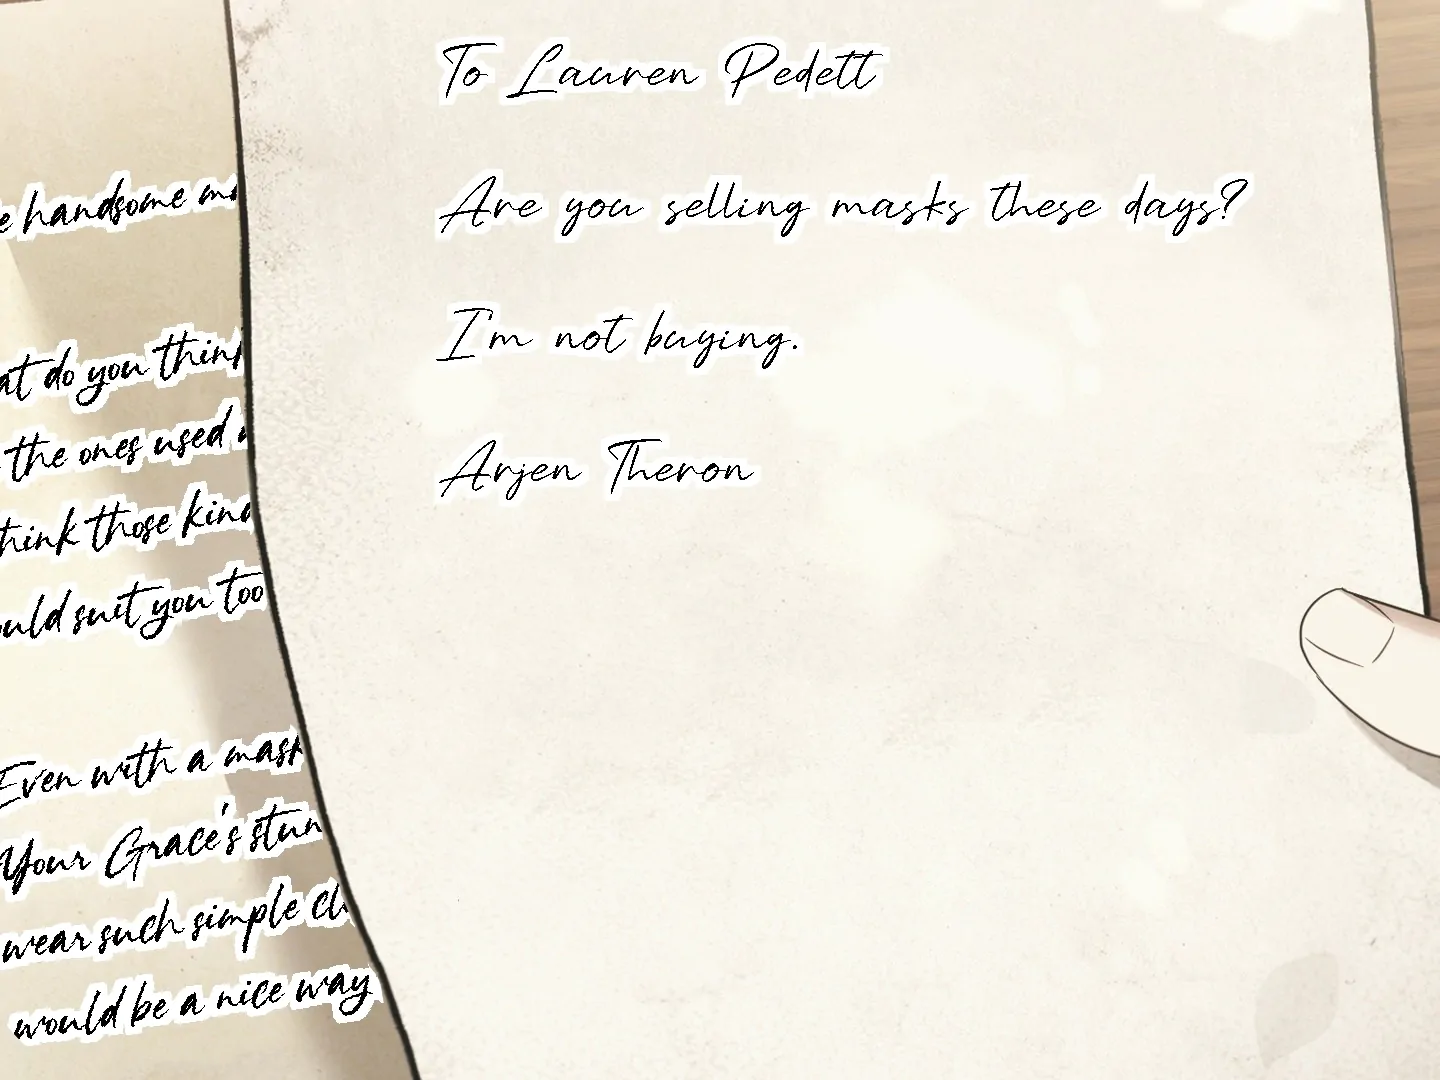 handsome
do you
the ones used
those
suit you too
Even with a
Your Grace's
wear such simple
would be a nice way
To Lauren Pedett
Are you selling masks these days?
I'm not buying.
Arjen Theron